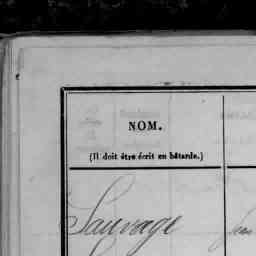 NOM.
(Il doit être écrit en bâtarde.)
Sauvage